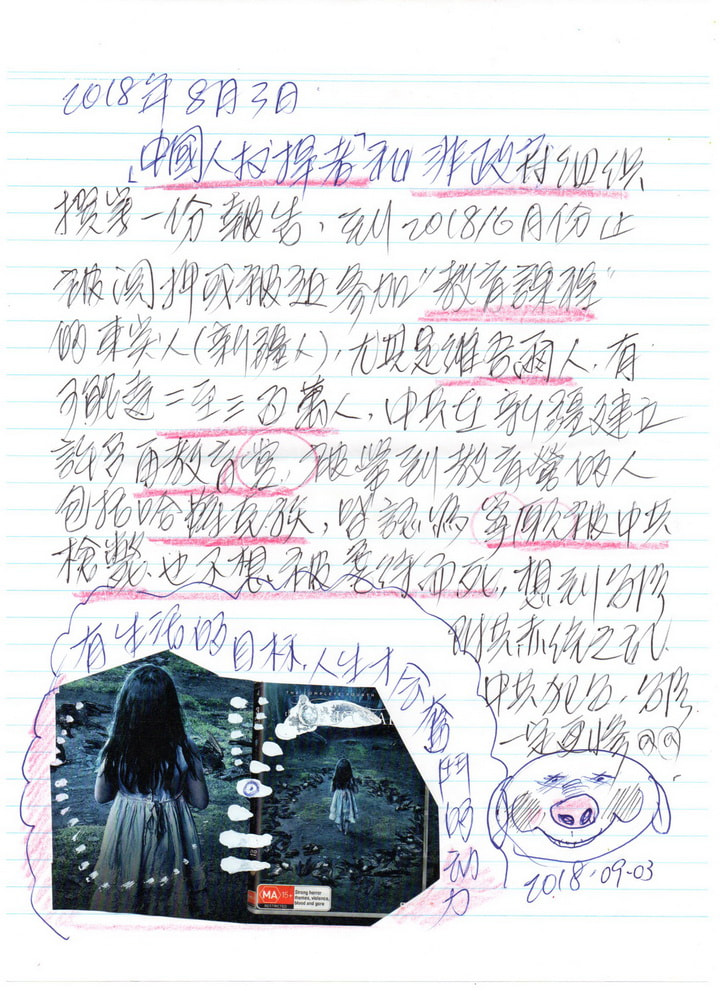 2018年8月3日
「中國人权捍者」和非政府组织
撰第一份報告、到2018/6月份止
被関押或被迫参加"教育課程"
的東突人(新疆人),尤其是維吾爾人,有
可能達二至三百萬人,中共在新疆建立
許多再教育營,被帶到教育營的人
包括哈薩克族,
槍斃、也不想被虐待而死,想到台灣
中共犯台,台灣
一定更慘
有生活的目標,人生才会
奮鬥的动力
THE COMPLETE FOURTH
MA 15+
RESTRICTED
Strong horror
themes, violence,
blood and gore
2018-09-03